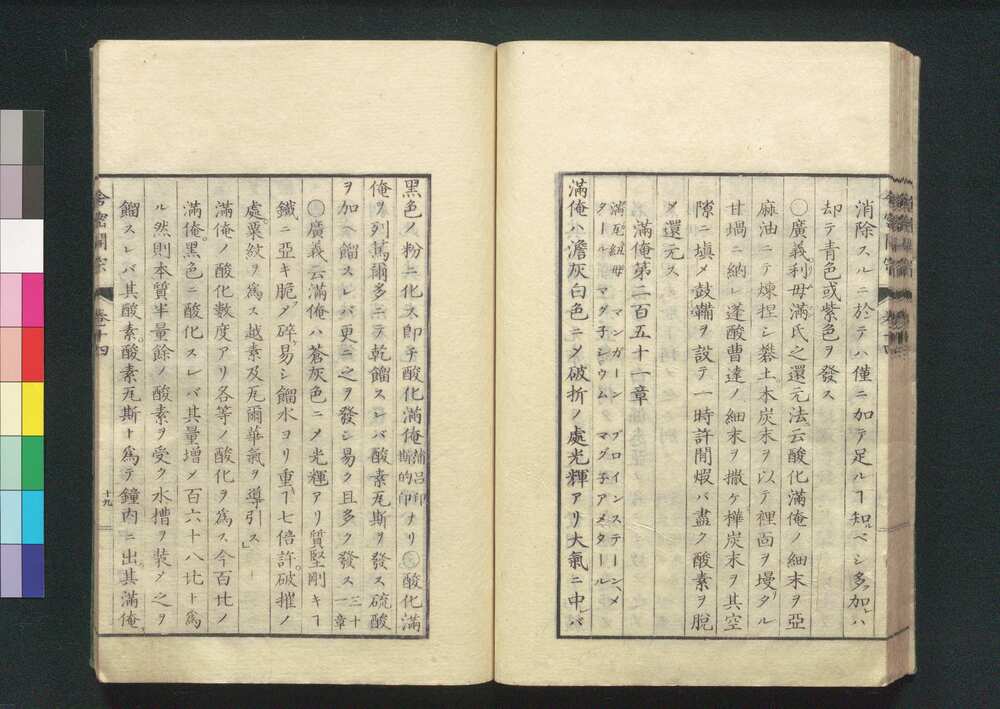 消除スルニ於テハ僅ニ加テ足ルヿ知ルベシ多ク加レハ
却テ青色或紫色ヲ發ス
〇廣義利毋滿氏之還元法云酸化滿俺ノ細末ヲ亞
麻油ニテ煉捏シ礬土木炭末ヲ以テ裡面ヲ墁タル
甘堝ニ納レ蓬酸曹達ノ細末ヲ撒ケ樺炭末ヲ其空
隙ニ填メ鼓鞴ヲ設テ一時許鬧煆バ盡ク酸素ヲ脫
〆還元ス
滿俺第二百五十一章
滿瓦紐毋 マンガーン ブロインステーンメ
タール マグ子シウム マグ子アメタール
滿俺ハ澹灰白色ニ〆破折ノ處光輝アリ大氣ニ中レバ
黑色ノ粉ニ化ス即チ酸化滿俺蒲呂印斯的印ナリ〇酸化滿
俺ヲ列篤爾多ニテ乾餾スレバ酸素瓦斯ヲ發ス硫酸
ヲ加ヘ餾スレバ更ニ之ヲ發シ易ク且多ク發ス三十一章
〇廣義云滿俺ハ蒼灰色ニ〆光輝アリ質堅剛キヿ
鐵ニ亞キ脆ク碎ケ易シ餾水ヨリ重キヿ七倍許破摧ノ
處粟紋ヲ爲ス越素及瓦爾華氣ヲ導引ス」
滿俺ノ酸化數度アリ各等ノ酸化ヲ爲ス今百比ノ
滿俺黑色ニ酸化スレバ其量增〆百六十八比ト爲
ル然則本質半量餘ノ酸素ヲ受ク水槽ヲ裝ノ之ヲ
餾スレバ其酸素酸素瓦斯ト爲テ鐘內ニ出其滿俺
舍密開宗
卷十四
十九